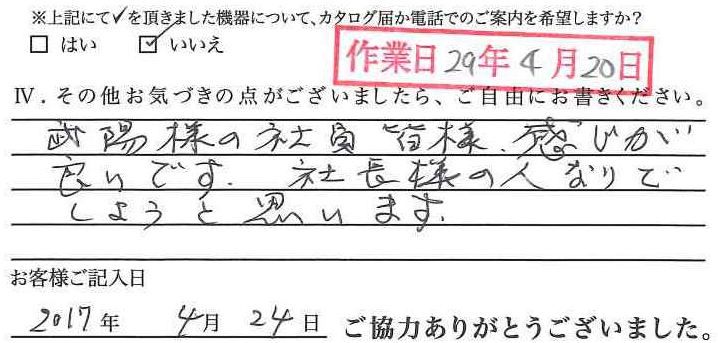 ※上記にて✓を頂きました機器について、カタログ届か電話でのご案内を希望しますか？
□ はい ☑ いいえ
作業日 29年 4月 20日
Ⅳ．その他お気づきの点がございましたら、ご自由にお書きください。
武陽様の社員皆様、感じが
良いです。社長様の人なりで
しょうと思います。
お客様ご記入日
2017年 4月 24日 ご協力ありがとうございました。